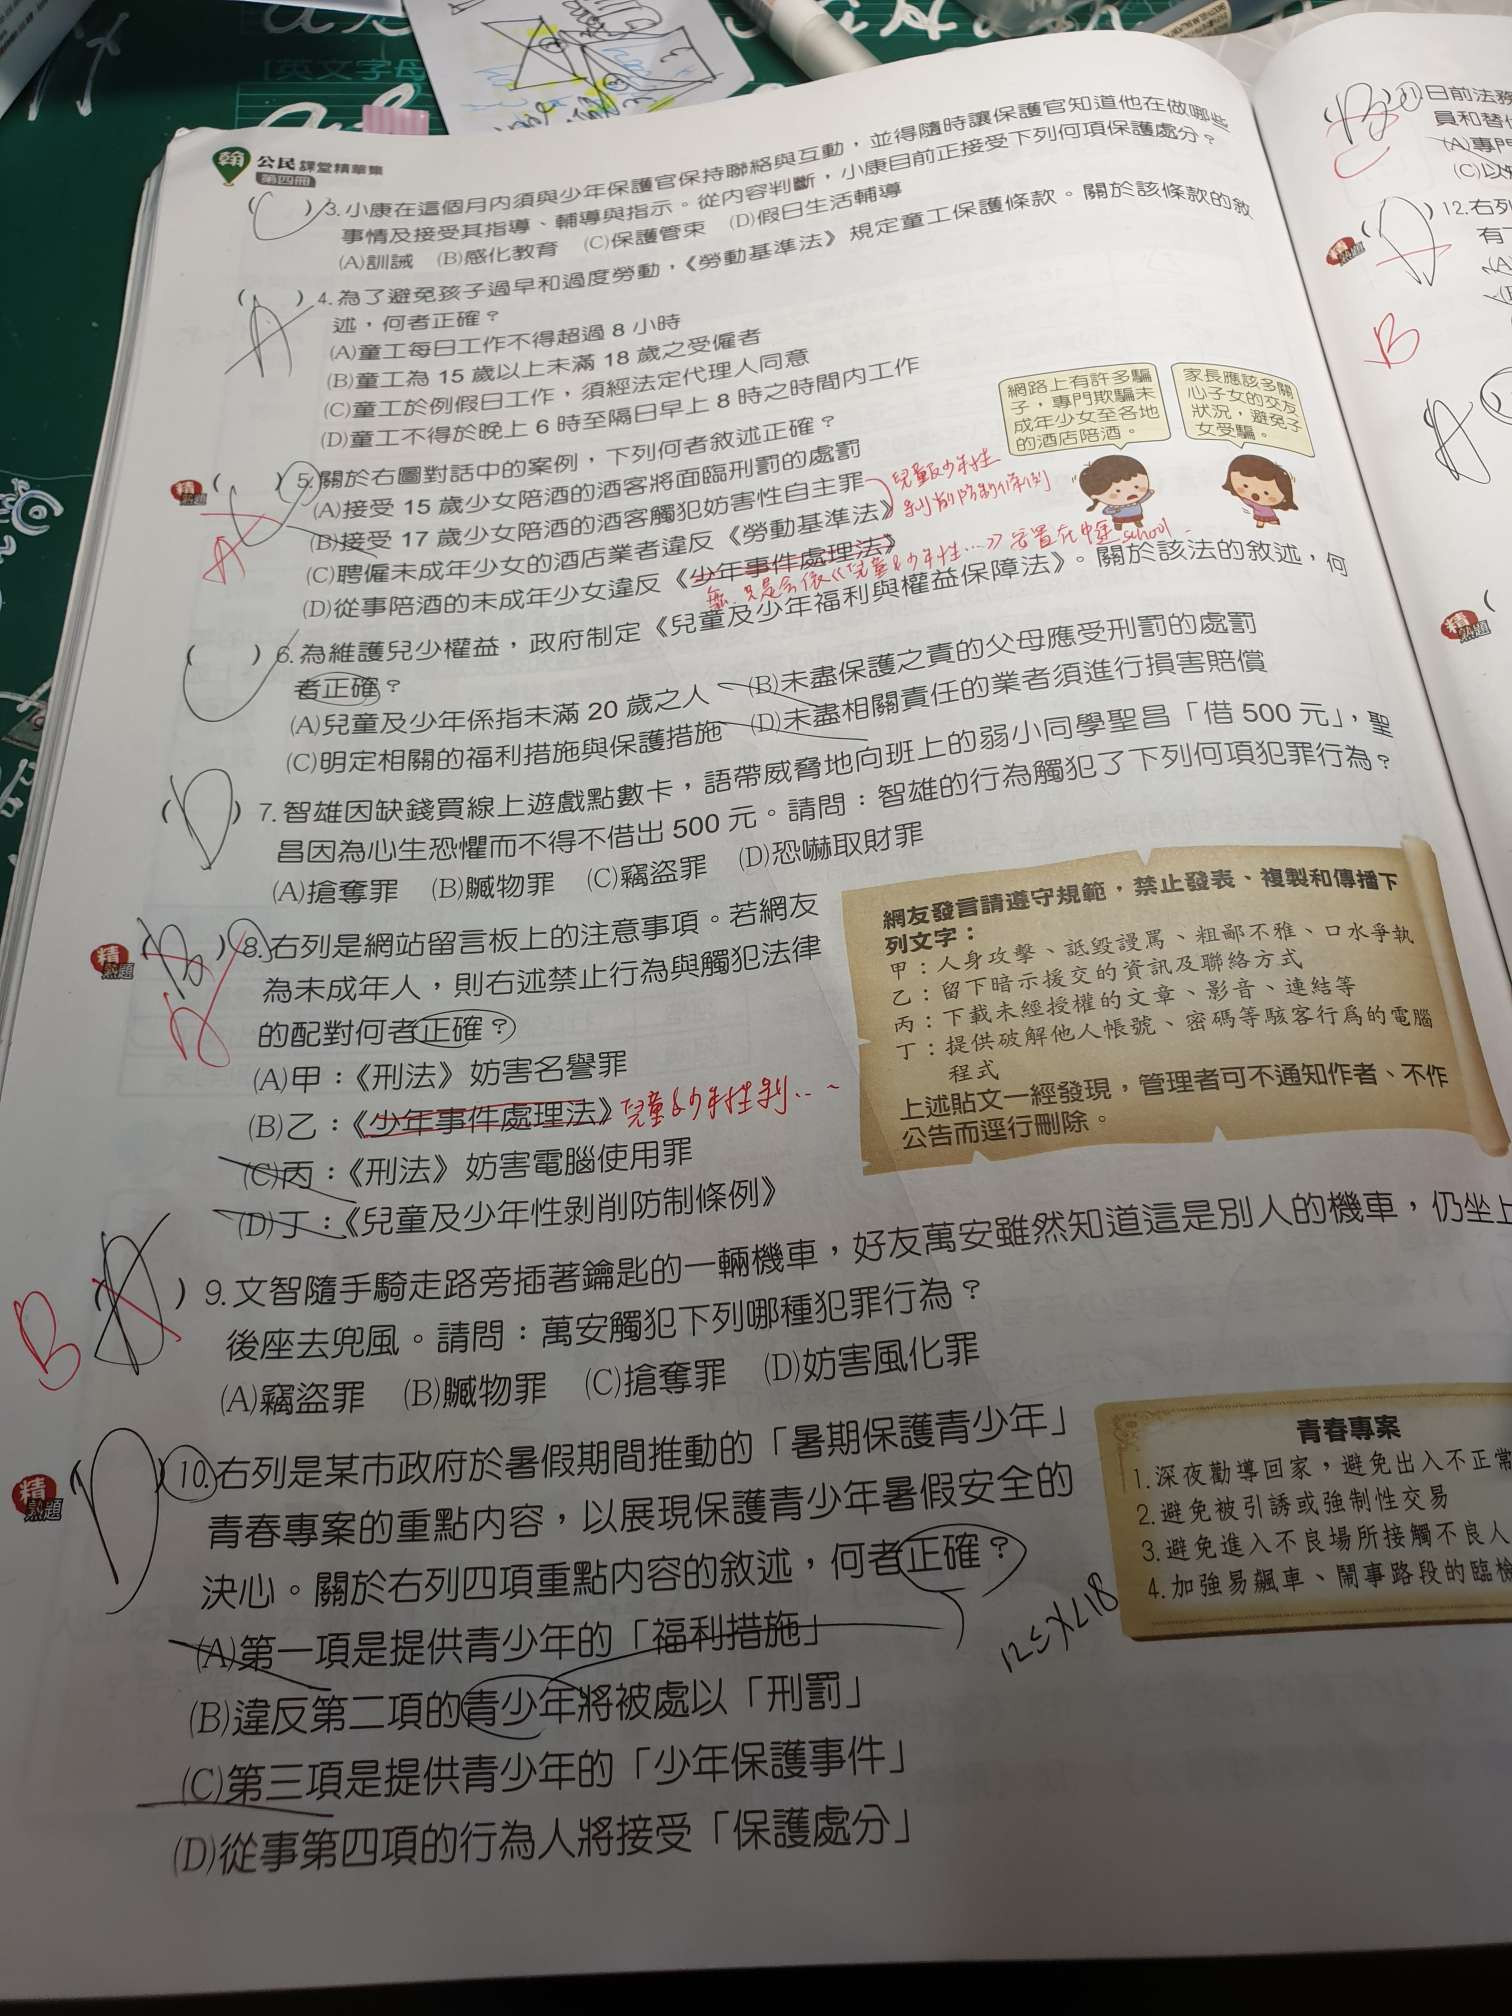 [英文字母
翰 公民 課堂精華集
第四冊
(C) 3.小康在這個月內須與少年保護官保持聯絡與互動，並得隨時讓保護官知道他在做哪些
事情及接受其指導、輔導與指示。從內容判斷，小康目前正接受下列何項保護處分？
(A)訓誡 (B)感化教育 (C)保護管束 (D)假日生活輔導
(A) 4.為了避免孩子過早和過度勞動，《勞動基準法》規定童工保護條款。關於該條款的敘
述，何者正確？
(A)童工每日工作不得超過 8 小時
(B)童工為 15 歲以上未滿 18 歲之受僱者
(C)童工於例假日工作，須經法定代理人同意
(D)童工不得於晚上 6 時至隔日早上 8 時之時間內工作
網路上有許多騙
子，專門欺騙未
成年少女至各地
的酒店陪酒。
家長應該多關
心子女的交友
狀況，避免子
女受騙。
精熟題 ( ) 5.關於右圖對話中的案例，下列何者敘述正確？
A
(A)接受 15 歲少女陪酒的酒客將面臨刑罰的處罰
(B)接受 17 歲少女陪酒的酒客觸犯妨害性自主罪
兒童及少年性
剝削防制條例
(C)聘僱未成年少女的酒店業者違反《勞動基準法》
(D)從事陪酒的未成年少女違反《少年事件處理法》
只是會依《兒童&少年性…》安置在中途school
(C) 6.為維護兒少權益，政府制定《兒童及少年福利與權益保障法》。關於該法的敘述，何
者正確？
(A)兒童及少年係指未滿 20 歲之人 (B)未盡保護之責的父母應受刑罰的處罰
(C)明定相關的福利措施與保護措施 (D)未盡相關責任的業者須進行損害賠償
(D) 7.智雄因缺錢買線上遊戲點數卡，語帶威脅地向班上的弱小同學聖昌「借 500 元」，聖
昌因為心生恐懼而不得不借出 500 元。請問：智雄的行為觸犯了下列何項犯罪行為？
(A)搶奪罪 (B)贓物罪 (C)竊盜罪 (D)恐嚇取財罪
精熟題 (B) 8.右列是網站留言板上的注意事項。若網友
為未成年人，則右述禁止行為與觸犯法律
的配對何者正確？
A
(A)甲：《刑法》妨害名譽罪
(B)乙：《少年事件處理法》兒童&少年性剝…
(C)丙：《刑法》妨害電腦使用罪
(D)丁：《兒童及少年性剝削防制條例》
網友發言請遵守規範，禁止發表、複製和傳播下
列文字：
甲：人身攻擊、詆毀謾罵、粗鄙不雅、口水爭執
乙：留下暗示援交的資訊及聯絡方式
丙：下載未經授權的文章、影音、連結等
丁：提供破解他人帳號、密碼等駭客行為的電腦
程式
上述貼文一經發現，管理者可不通知作者、不作
公告而逕行刪除。
B ( ) 9.文智隨手騎走路旁插著鑰匙的一輛機車，好友萬安雖然知道這是別人的機車，仍坐上
後座去兜風。請問：萬安觸犯下列哪種犯罪行為？
(A)竊盜罪 (B)贓物罪 (C)搶奪罪 (D)妨害風化罪
精熟題 (D) 10.右列是某市政府於暑假期間推動的「暑期保護青少年」
青春專案的重點內容，以展現保護青少年暑假安全的
決心。關於右列四項重點內容的敘述，何者正確？
(A)第一項是提供青少年的「福利措施」
(B)違反第二項的青少年將被處以「刑罰」
(C)第三項是提供青少年的「少年保護事件」
(D)從事第四項的行為人將接受「保護處分」
12≤X<18
青春專案
1.深夜勸導回家，避免出入不正常
2.避免被引誘或強制性交易
3.避免進入不良場所接觸不良人
4.加強易飆車、鬧事路段的臨檢
(B) 11.日前法務
員和替代
(A)專門
(C)以
C
精熟題 (D) 12.右列
有
(A)
B
A
精熟題 (